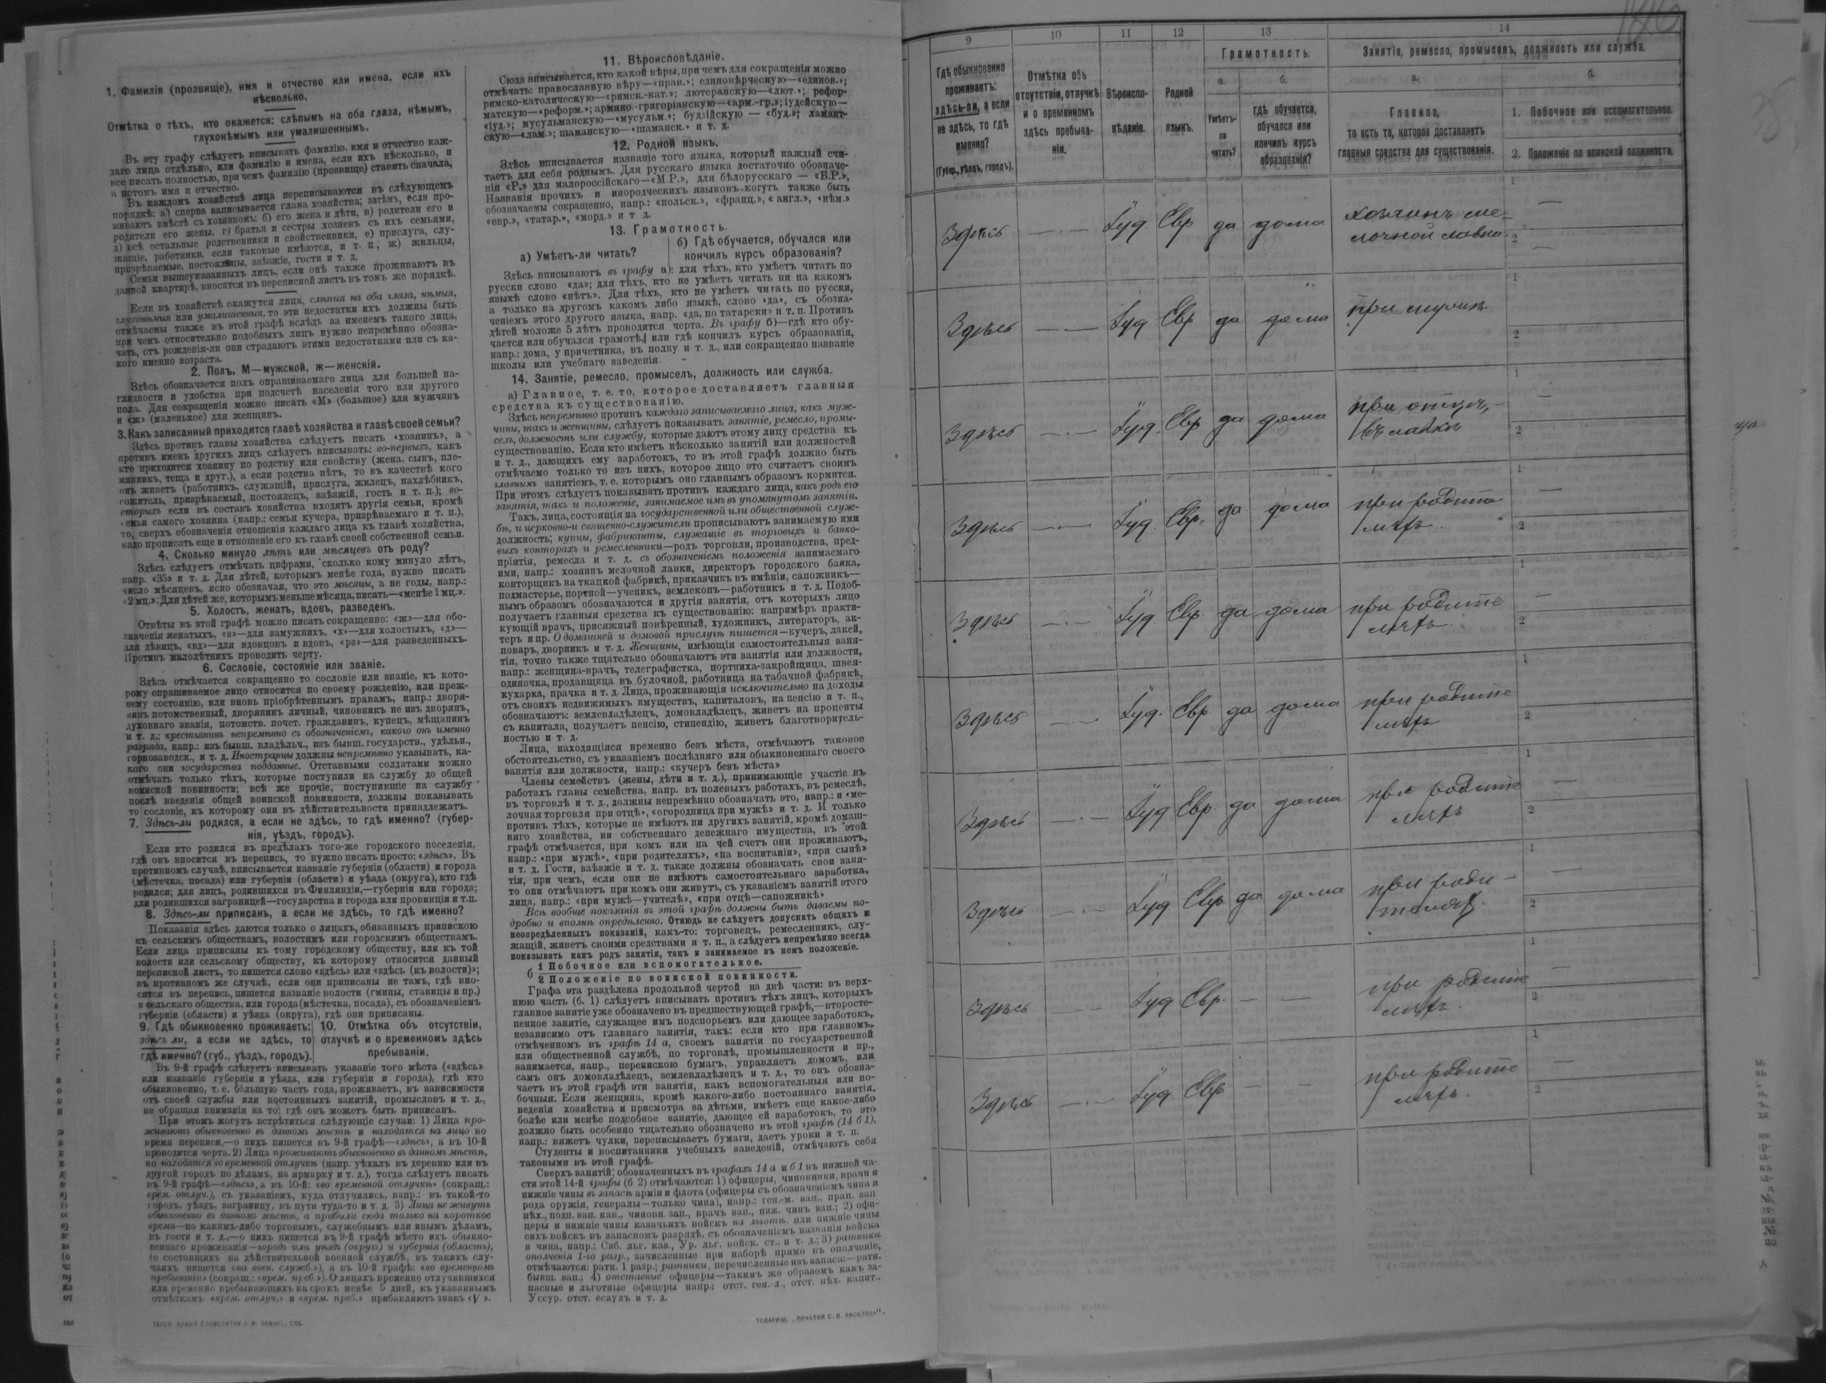 1. Фамилія (прозвище), имя и отчество или имена, если ихъ
нѣсколько.
Отмѣтка о тѣхъ, кто окажется: слѣпымъ на оба глаза, нѣмымъ,
глухонѣмымъ или умалишеннымъ.
Въ эту графу слѣдуетъ вписывать фамилію, имя и отчество каж-
даго лица отдѣльно, или фамилію и имена, если ихъ нѣсколько, и
все писать полностью, при чемъ фамилію (прозвище) ставить сначала,
а потомъ имя и отчество.
Въ каждомъ хозяйствѣ лица переписываются въ слѣдующемъ
порядкѣ: а) сперва записывается глава хозяйства; затѣмъ, если про-
живаютъ вмѣстѣ съ хозяиномъ: б) его жена и дѣти, в) родители его и
родители его жены, г) братья и сестры хозяевъ съ ихъ семьями,
д) всѣ остальные родственники и свойственники, е) прислуга, слу-
жащіе, работники, если таковые имѣются, и т. п., ж) жильцы,
призрѣваемые, постояльцы, заѣзжіе, гости и т. д.
Семьи вышеуказанныхъ лицъ, если онѣ также проживаютъ въ
данной квартирѣ, вносятся въ переписной листъ въ томъ же порядкѣ.
Если въ хозяйствѣ окажутся лица, слѣпыя на оба глаза, нѣмыя,
глухонѣмыя или умалишенныя, то эти недостатки ихъ должны быть
отмѣчаемы также въ этой графѣ вслѣдъ за именемъ такого лица,
при чемъ относительно подобныхъ лицъ нужно непремѣнно обозна-
чать, отъ рожденія-ли они страдаютъ этими недостатками или съ ка-
кого именно возраста.
2. Полъ. М—мужской, ж—женскій.
Здѣсь обозначается полъ опрашиваемаго лица для большей на-
глядности и удобства при подсчетѣ населенія того или другого
пола. Для сокращенія можно писать «М» (большое) для мужчинъ
и «ж» (маленькое) для женщинъ.
3. Какъ записанный приходится главѣ хозяйства и главѣ своей семьи?
Здѣсь противъ главы хозяйства слѣдуетъ писать «хозяинъ», а
противъ именъ другихъ лицъ слѣдуетъ вписывать: во-первыхъ, какъ
кто приходится хозяину по родству или свойству (жена, сынъ, пле-
мянникъ, теща и друг.), а если родства нѣтъ, то въ качествѣ кого
онъ живетъ (работникъ, служащій, прислуга, жилецъ, нахлѣбникъ,
сожитель, призрѣваемый, постоялецъ, заѣзжій, гость и т. п.); во-
вторыхъ если въ составъ хозяйства входятъ другія семьи, кромѣ
семьи самого хозяина (напр.: семья кучера, призрѣваемаго и т. п.),
то, сверхъ обозначенія отношенія каждаго лица къ главѣ хозяйства,
надо прописать еще и отношеніе его къ главѣ своей собственной семьи.
4. Сколько минуло лѣтъ или мѣсяцевъ отъ роду?
Здѣсь слѣдуетъ отмѣчать цифрами, сколько кому минуло лѣтъ,
напр. «35» и т. д. Для дѣтей, которымъ менѣе года, нужно писать
число мѣсяцевъ, ясно обозначая, что это мѣсяцы, а не годы, напр.:
«2 мц.». Для дѣтей же, которымъ меньше мѣсяца, писать—«менѣе 1 мц.».
5. Холостъ, женатъ, вдовъ, разведенъ.
Отвѣты въ этой графѣ можно писать сокращенно: «ж»—для обо-
значенія женатыхъ, «з»—для замужнихъ, «х»—для холостыхъ, «д»—
для дѣвицъ, «вд»—для вдовцовъ и вдовъ, «рз»—для разведенныхъ.
Противъ малолѣтнихъ проводить черту.
6. Сословіе, состояніе или званіе.
Здѣсь отмѣчается сокращенно то сословіе или званіе, къ кото-
рому опрашиваемое лицо относится по своему рожденію, или преж-
нему состоянію, или вновь пріобрѣтеннымъ правамъ, напр.: дворя-
нинъ потомственный, дворянинъ личный, чиновникъ не изъ дворянъ,
духовнаго званія, потомств. почет. гражданинъ, купецъ, мѣщанинъ
и т. д.; крестьянинъ непремѣнно съ обозначеніемъ, какого онъ именно
разряда, напр.: изъ бывш. владѣльч., изъ бывш. государств., удѣльн.,
горнозаводск., и т. д. Иностранцы должны непремѣнно указывать, ка-
кого они государства подданные. Отставными солдатами можно
отмѣчать только тѣхъ, которые поступили на службу до общей
воинской повинности; всѣ же прочіе, поступившіе на службу
послѣ введенія общей воинской повинности, должны показывать
то сословіе, къ которому они въ дѣйствительности принадлежатъ.
7. Здѣсь-ли родился, а если не здѣсь, то гдѣ именно? (губер-
нія, уѣздъ, городъ).
Если кто родился въ предѣлахъ того-же городского поселенія,
гдѣ онъ вносится въ перепись, то нужно писать просто: «здѣсь». Въ
противномъ случаѣ, вписывается названіе губерніи (области) и города
(мѣстечка, посада) или губерніи (области) и уѣзда (округа), кто гдѣ
родился; для лицъ, родившихся въ Финляндіи,—губернія или города;
для родившихся заграницей—государства и города или провинціи и т.п.
8. Здѣсь-ли приписанъ, а если не здѣсь, то гдѣ именно?
Показанія здѣсь даются только о лицахъ, обязанныхъ припискою
къ сельскимъ обществамъ, волостямъ или городскимъ обществамъ.
Если лица приписаны къ тому городскому обществу, или къ той
волости или сельскому обществу, къ которому относится данный
переписной листъ, то пишется слово «здѣсь» или «здѣсь (къ волости)»;
въ противномъ же случаѣ, если они приписаны не тамъ, гдѣ вно-
сятся въ перепись, пишется названіе волости (гмины, станицы и пр.)
и сельскаго общества, или города (мѣстечка, посада), съ обозначеніемъ
губерніи (области) и уѣзда (округа), гдѣ они приписаны.
9. Гдѣ обыкновенно проживаетъ:
здѣсь ли, а если не здѣсь, то
гдѣ именно? (губ., уѣздъ, городъ).
10. Отмѣтка объ отсутствіи,
отлучкѣ и о временномъ здѣсь
пребываніи.
Въ 9-й графѣ слѣдуетъ вписывать указаніе того мѣста («здѣсь»
или названіе губерніи и уѣзда, или губерніи и города), гдѣ кто
обыкновенно, т. е. большую часть года, проживаетъ, въ зависимости
отъ своей службы или постоянныхъ занятій, промысловъ и т. д.,
не обращая вниманія на то, гдѣ онъ можетъ быть приписанъ.
При этомъ могутъ встрѣтиться слѣдующіе случаи: 1) Лица про-
живаютъ обыкновенно въ данномъ мѣстѣ и находятся на лицо во
время переписи,—о нихъ пишется въ 9-й графѣ—«здѣсь», а въ 10-й
проводится черта. 2) Лица проживаютъ обыкновенно въ данномъ мѣстѣ,
но находятся во временной отлучкѣ (напр. уѣхалъ въ деревню или въ
другой городъ по дѣламъ, на ярмарку и т. д.), тогда слѣдуетъ писать
въ 9-й графѣ—«здѣсь», а въ 10-й: «во временной отлучкѣ» (сокращ.:
«врем. отлуч.), съ указаніемъ, куда отлучились, напр.: въ такой-то
городъ, уѣздъ, заграницу, въ пути туда-то и т. д. 3) Лица не живутъ
обыкновенно въ данномъ мѣстѣ, а прибыли сюда только на короткое
время—по какимъ-либо торговымъ, служебнымъ или инымъ дѣламъ,
въ гости и т. д.,—о нихъ пишется въ 9-й графѣ мѣсто ихъ обыкно-
веннаго проживанія—городъ или уѣздъ (округъ) и губернія (область),
(о состоящихъ на дѣйствительной военной службѣ, въ такихъ слу-
чаяхъ пишется «на воен. службѣ»), а въ 10-й графѣ: «во временномъ
пребываніи» (сокращ.: «врем. преб.»). О лицахъ временно отлучившихся
или временно пребывающихъ на срокъ менѣе 5 дней, къ указаннымъ
отмѣткамъ «врем. отлуч.» и «врем. преб.» прибавляютъ знакъ «V».
11. Вѣроисповѣданіе.
Сюда вписывается, кто какой вѣры, при чемъ для сокращенія можно
отмѣчать: православную вѣру—«прав.»; единовѣрческую—«единов.»;
римско-католическую—«римск.-кат.»; лютеранскую—«лют.»; рефор-
матскую—«реформ.»; армяно-григоріанскую—«арм.-гр.»; іудейскую—
«іуд.»; мусульманскую—«мусульм.»; буддійскую — «буд.»; ламаит-
скую—«лам.»; шаманскую—«шаманск.» и т. д.
12. Родной языкъ.
Здѣсь вписывается названіе того языка, который каждый счи-
таетъ для себя роднымъ. Для русскаго языка достаточно обозначе-
нія «Р.» для малороссійскаго—«М.Р.», для бѣлорусскаго — «Б.Р.»,
Названія прочихъ и инородческихъ языковъ могутъ также быть
обозначаемы сокращенно, напр.: «польск.», «франц.», «англ.», «нѣм.»
«евр.», «татар.», «морд.» и т д.
13. Грамотность.
а) Умѣетъ-ли читать?
б) Гдѣ обучается, обучался или
кончилъ курсъ образованія?
Здѣсь вписываютъ въ графу а): для тѣхъ, кто умѣетъ читать по
русски слово «да»; для тѣхъ, кто не умѣетъ читать ни на какомъ
языкѣ слово «нѣтъ». Для тѣхъ, кто не умѣетъ читать по русски,
а только на другомъ какомъ либо языкѣ, слово «да», съ обозна-
ченіемъ этого другого языка, напр. «да, по татарски» и т. п. Противъ
дѣтей моложе 5 лѣтъ проводится черта. Въ графу б)—гдѣ кто обу-
чается или обучался грамотѣ, или гдѣ кончилъ курсъ образованія,
напр.: дома, у причетника, въ полку и т. д., или сокращенно названіе
школы или учебнаго заведенія.
14. Занятіе, ремесло, промыселъ, должность или служба.
а) Главное, т. е. то, которое доставляетъ главныя
средства къ существованію.
Здѣсь непремѣнно противъ каждаго записываемаго лица, какъ муж-
чины, такъ и женщины, слѣдуетъ показывать занятіе, ремесло, промы-
сел, должность или службу, которые даютъ этому лицу средства къ
существованію. Если кто имѣетъ нѣсколько занятій или должностей
и т. д., дающихъ ему заработокъ, то въ этой графѣ должно быть
отмѣчаемо только то изъ нихъ, которое лицо это считаетъ своимъ
главнымъ занятіемъ, т. е. которымъ оно главнымъ образомъ кормится.
При этомъ слѣдуетъ показывать противъ каждаго лица, какъ родъ его
занятія, такъ и положеніе, занимаемое имъ въ упомянутомъ занятіи.
Такъ, лица, состоящія на государственной или общественной служ-
бѣ, и церковно-и священно-служители прописываютъ занимаемую ими
должность; купцы, фабриканты, служащіе въ торговыхъ и банко-
выхъ конторахъ и ремесленники—родъ торговли, производства, пред-
пріятія, ремесла и т. д. съ обозначеніемъ положенія занимаемаго
ими, напр.: хозяинъ мелочной лавки, директоръ городского банка,
конторщикъ на ткацкой фабрикѣ, приказчикъ въ имѣніи, сапожникъ—
подмастерье, портной—ученикъ, землекопъ—работникъ и т. д. Подоб-
нымъ образомъ обозначаются и другія занятія, отъ которыхъ лицо
получаетъ главныя средства къ существованію: напримѣръ практи-
кующій врачъ, присяжный повѣренный, художникъ, литераторъ, ак-
теръ и пр. О домашней и домовой прислугѣ пишется—кучеръ, лакей,
поваръ, дворникъ и т. д. Женщины, имѣющія самостоятельныя заня-
тія, точно также тщательно обозначаютъ эти занятія или должности,
напр.: женщина-врачъ, телеграфистка, портниха-закройщица, швея-
одиночка, продавщица въ булочной, работница на табачной фабрикѣ,
кухарка, прачка и т. д. Лица, проживающія исключительно на доходы
отъ своихъ недвижимыхъ имуществъ, капиталовъ, на пенсію и т. п.,
обозначаютъ: землевладѣлецъ, домовладѣлецъ, живетъ на проценты
съ капитала, получаетъ пенсію, стипендію, живетъ благотворитель-
ностью и т. д.
Лица, находящіяся временно безъ мѣста, отмѣчаютъ таковое
обстоятельство, съ указаніемъ послѣдняго или обыкновеннаго своего
занятія или должности, напр.: «кучеръ безъ мѣста»
Члены семействъ (жены, дѣти и т. д.), принимающіе участіе въ
работахъ главы семейства, напр. въ полевыхъ работахъ, въ ремеслѣ,
въ торговлѣ и т. д., должны непремѣнно обозначать это, напр.: «ме-
лочная торговля при отцѣ», «огородница при мужѣ» и т. д. И только
противъ тѣхъ, которые не имѣютъ ни другихъ занятій, кромѣ домаш-
няго хозяйства, ни собственнаго денежнаго имущества, въ этой
графѣ отмѣчается, при комъ или на чей счетъ они проживаютъ,
напр.: «при мужѣ», «при родителяхъ», «на воспитаніи», «при сынѣ»
и т. д. Гости, заѣзжіе и т. д. также должны обозначать свои заня-
тія, при чемъ, если они не имѣютъ самостоятельнаго заработка,
то они отмѣчаютъ при комъ они живутъ, съ указаніемъ занятій этого
лица, напр.: «при мужѣ—учителѣ», «при отцѣ—сапожникѣ»
Всѣ вообще показанія въ этой графѣ должны быть даваемы по-
дробно и вполнѣ опредѣленно. Отнюдь не слѣдуетъ допускать общихъ и
неопредѣленныхъ показаній, какъ-то: торговецъ, ремесленникъ, слу-
жащій, живетъ своими средствами и т. п., а слѣдуетъ непремѣнно всегда
показывать какъ родъ занятія, такъ и занимаемое въ немъ положеніе.
б 1 Побочное или вспомогательное.
2 Положеніе по воинской повинности.
Графа эта раздѣлена продольной чертой на двѣ части: въ верх-
нюю часть (б. 1) слѣдуетъ вписывать противъ тѣхъ лицъ, которыхъ
главное занятіе уже обозначено въ предшествующей графѣ,—второсте-
пенное занятіе, служащее имъ подспорьемъ или дающее заработокъ,
независимо отъ главнаго занятія, такъ: если кто при главномъ,
отмѣченномъ въ графѣ 14 а, своемъ занятіи по государственной
или общественной службѣ, по торговлѣ, промышленности и пр.,
занимается, напр., перепискою бумагъ, управляетъ домомъ, или
самъ онъ домовладѣлецъ, землевладѣлецъ и т. д., то онъ обозна-
чаетъ въ этой графѣ эти занятія, какъ вспомогательныя или по-
бочныя. Если женщина, кромѣ какого-либо постояннаго занятія,
веденія хозяйства и присмотра за дѣтьми, имѣетъ еще какое-либо
болѣе или менѣе подсобное занятіе, дающее ей заработокъ, то это
должно быть особенно тщательно обозначено въ этой графѣ (14 б 1),
напр.: вяжетъ чулки, переписываетъ бумаги, даетъ уроки и т. п.
Студенты и воспитанники учебныхъ заведеній, отмѣчаютъ себя
таковыми въ этой графѣ.
Сверхъ занятій, обозначенныхъ въ графахъ 14 а и б 1 въ нижней ча-
сти этой 14-й графы (б 2) отмѣчаются: 1) офицеры, чиновники, врачи и
нижніе чины въ запасѣ арміи и флота (офицеры съ обозначеніемъ чина и
рода оружія, генералы—только чина), напр.: ген.-м. зап., прап. зап
пѣх., подп. зап. кав., чиновн. зап., врачъ зап., ниж. чинъ зап.; 2) офи-
церы и нижніе чины казачьихъ войскъ на льготѣ, или нижніе чины
сихъ войскъ въ запасномъ разрядѣ, съ обозначеніемъ названія войска
и чина, напр.: Сиб. льг. каз., Ур. льг. войск. ст., и т. д.; 3) ратники
ополченія 1-го разр., зачисленные при наборѣ прямо въ ополченіе,
отмѣчаются: ратн. 1 разр.; ратники, перечисленные изъ запаса:—ратн.
бывш. зап.; 4) отставные офицеры—такимъ же образомъ какъ за-
пасные и льготные офицеры напр.: отст. ген.-л., отст. пѣх. капит.,
Уссур. отст. есаулъ и т. д.
9
10
11
12
13
14
Гдѣ обыкновенно
проживаетъ:
здѣсь-ли, а если
не здѣсь, то гдѣ
именно?
(Губер., уѣздъ, городъ).
Отмѣтка объ
отсутствіи, отлучкѣ
и о временномъ
здѣсь пребыва-
ніи.
Вѣроиспо-
вѣданіе.
Родной
языкъ.
Грамотность.
а.
б.
Умѣетъ-
ли
читать?
гдѣ обучается,
обучался или
кончилъ курсъ
образованія?
Занятіе, ремесло, промыселъ, должность или служба.
а.
б.
Главное,
то есть то, которое доставляетъ
главныя средства для существованія.
1. Побочное или вспомогательное.
2. Положеніе по воинской повинности.
Здѣсь — Іуд Евр да дома хозяинъ ме-
лочной лавки
Здѣсь — Іуд Евр да дома при мужѣ
Здѣсь — Іуд. Евр да дома при отцѣ,
въ лавкѣ
Здѣсь — Іуд. Евр. да дома при родите
ляхъ
Здѣсь — Іуд Евр да дома при родите
ляхъ
Здѣсь — Іуд. Евр да дома при родите
ляхъ
Здѣсь — Іуд Евр да дома при родите
ляхъ
Здѣсь — Іуд Евр да дома при роди-
теляхъ
Здѣсь — Іуд Евр. — — при родите
ляхъ
Здѣсь — Іуд Евр — — при родите
ляхъ.